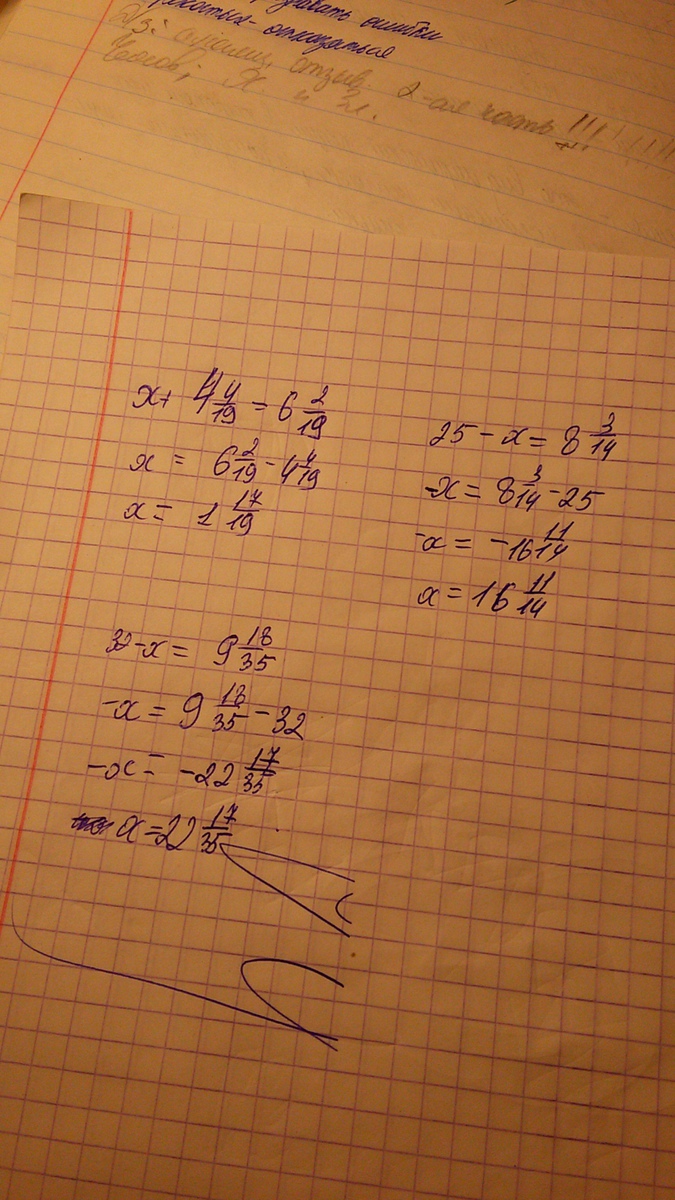 давать ошибки
отказаться
отзыв. 2-ая часть !!!
x + 4 4/19 = 6 2/19
x = 6 2/19 - 4 4/19
x = 1 17/19
25 - x = 8 3/14
-x = 8 3/14 - 25
-x = -16 11/14
x = 16 11/14
32 - x = 9 18/35
-x = 9 18/35 - 32
-x = -22 17/35
x = 22 17/35